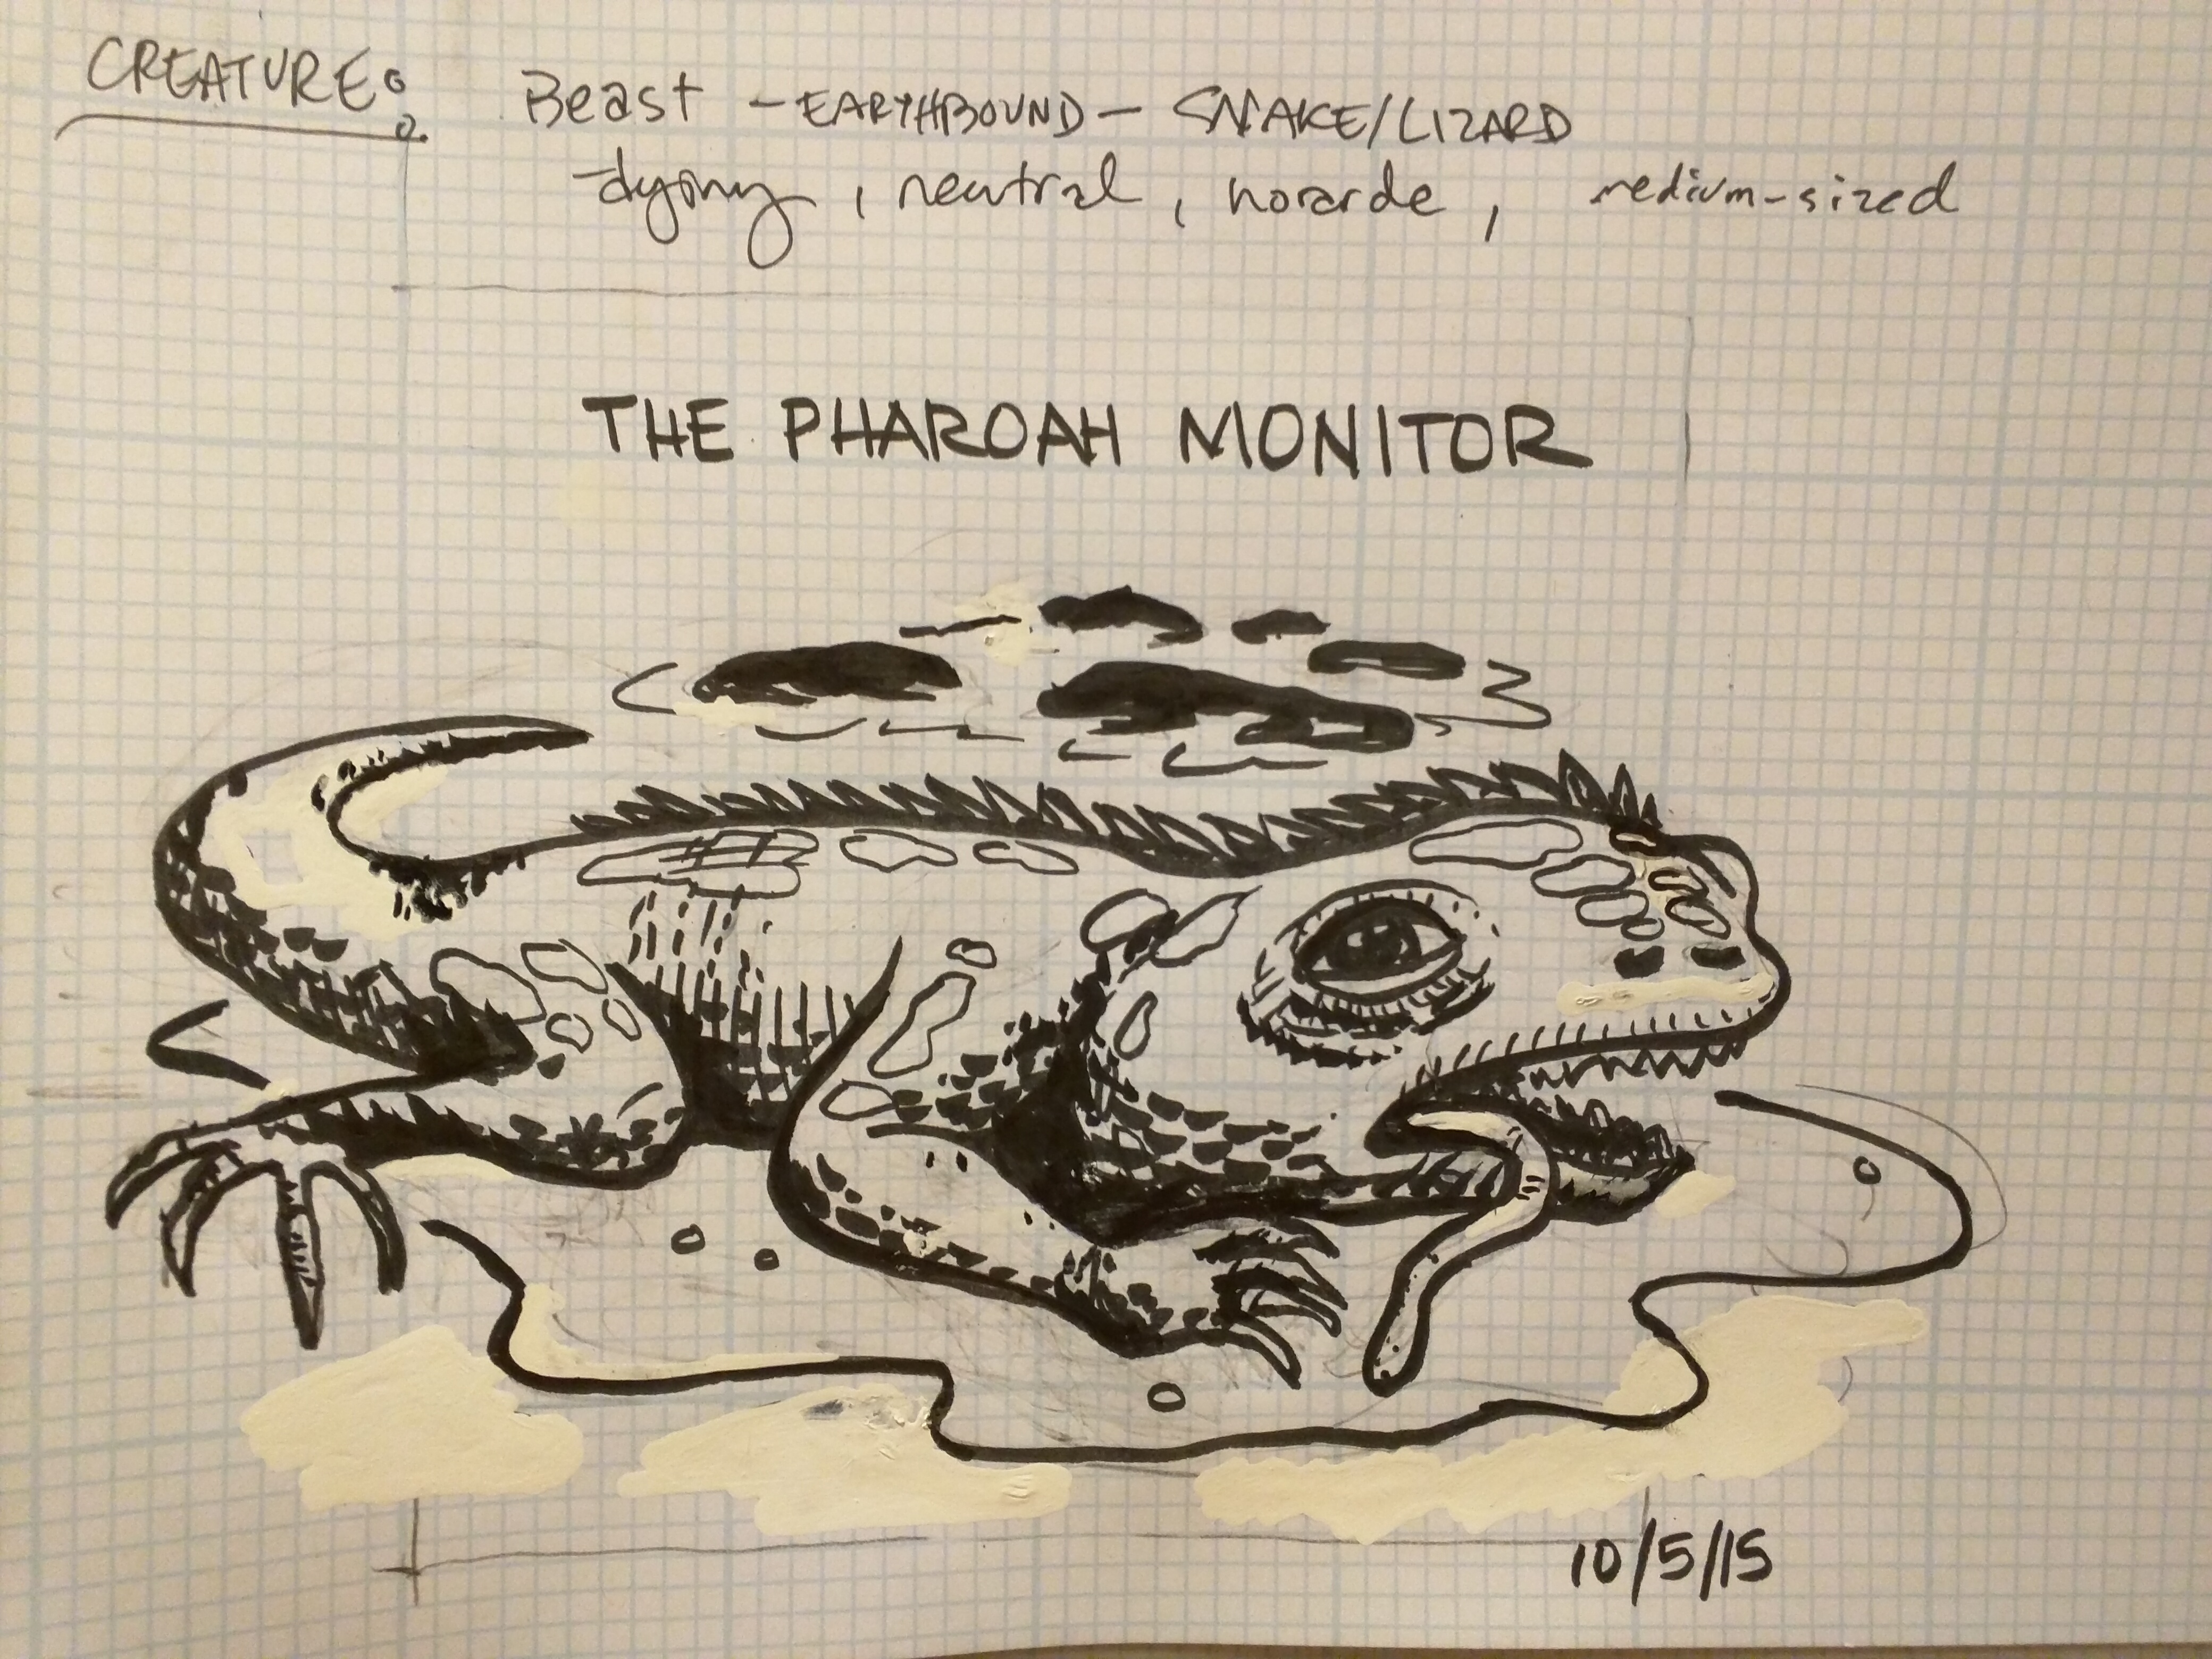 CREATURE: Beast - EARTHBOUND - SNAKE/LIZARD
dying, neutral, horarde, medium-sized
THE PHAROAH MONITOR
10/5/15